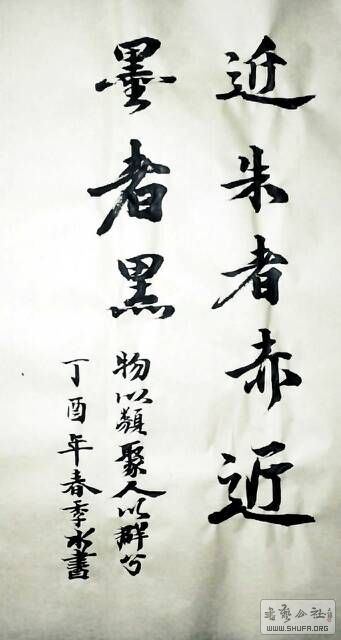 近朱者赤近
墨者黑
物以類聚人以群分
丁酉年春季水書
書藝公社
WWW.SHUFA.ORG